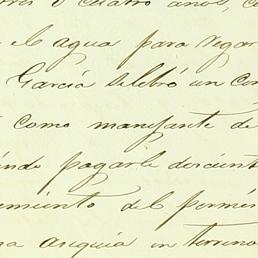 ó cuatro años, c
el agua para regar
García celebró un con
como manifante de
pagarle doscient
miento del permis
na acequia en terreno